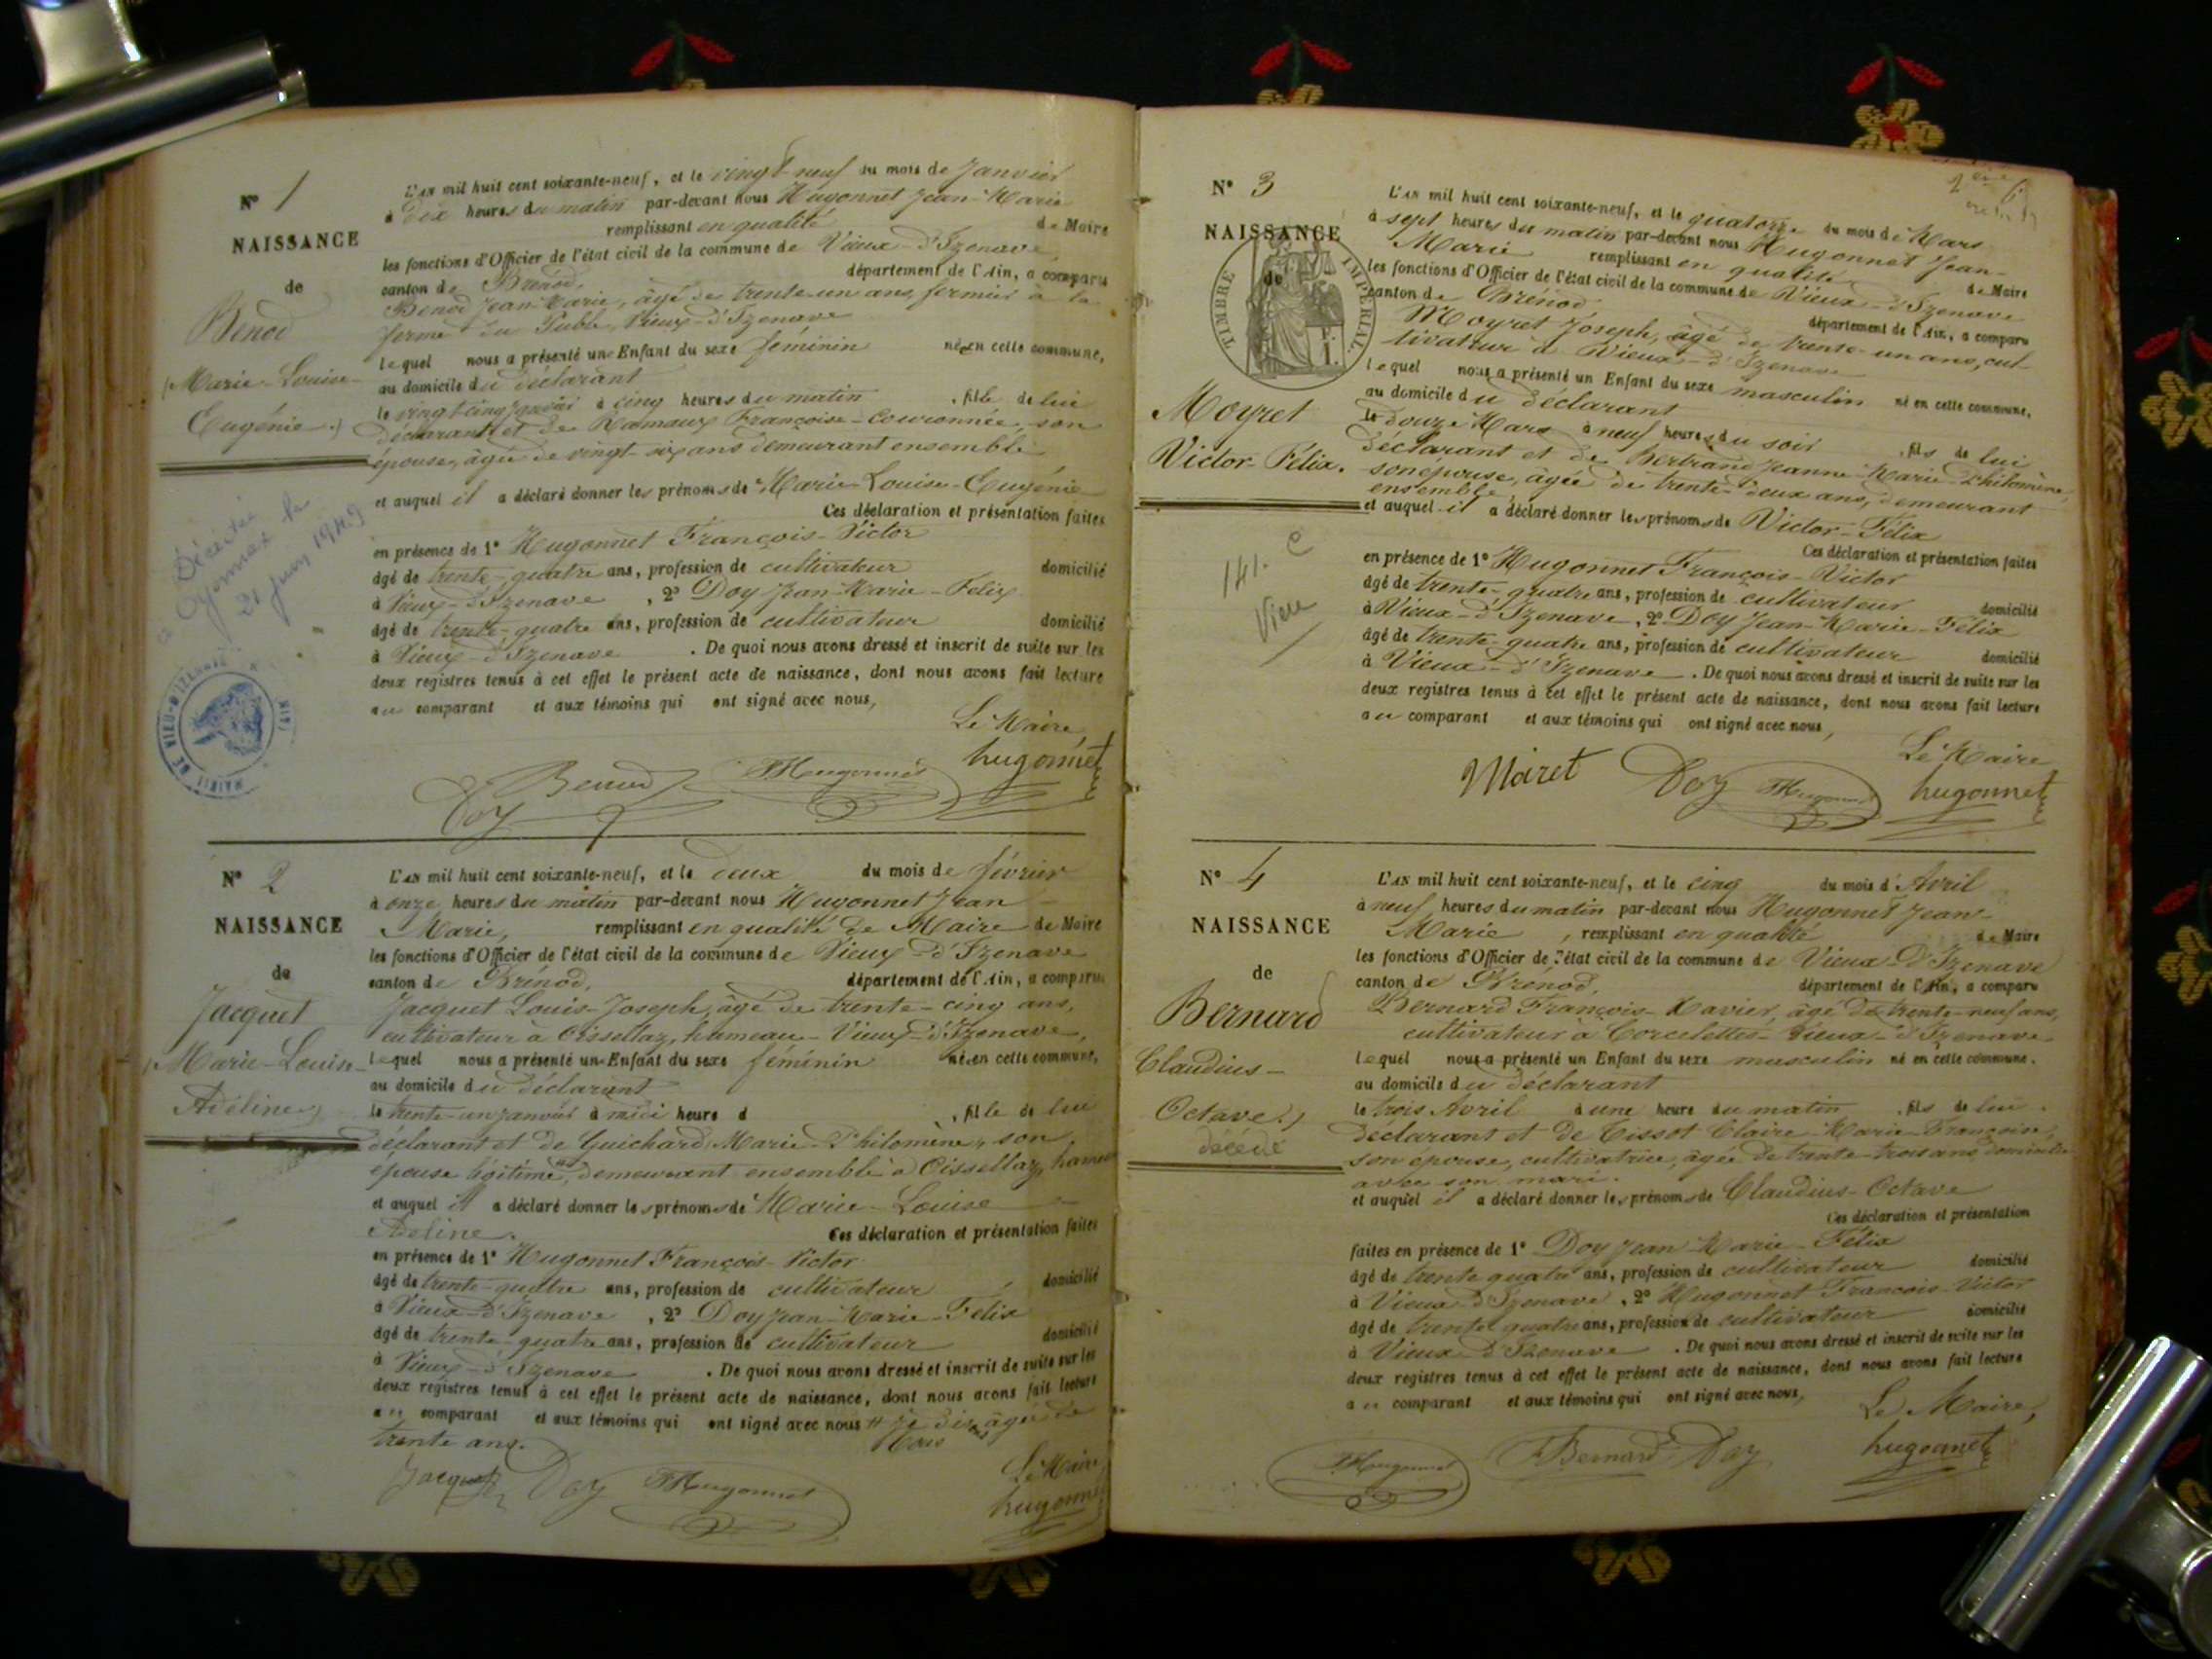 N° 1
NAISSANCE
de
Benod
(Marie-Louise-
Eugénie.)
Décédée
à Oyonnax le
21 juin 1949
MAIRIE DE VIEU-D'IZENAVE
(AIN)
L'AN mil huit cent soixante-neuf, et le vingt-neuf du mois de Janvier
à Dix heures du matin par-devant nous Hugonnet Jean-Marie
remplissant en qualité de Maire
les fonctions d'Officier de l'état civil de la commune de Vieux-d'Izenave,
canton de Brénod, département de l'Ain, a comparu
Benod Jean-Marie, âgé de trente-un ans, fermier à la
ferme du Vieux-d'Izenave
lequel nous a présenté une Enfant du sexe féminin née en cette commune,
au domicile du déclarant
le vingt-cinq janvier à cinq heures du matin , fille de lui
déclarant et de Ramaux Françoise-Couronnée, son
épouse, âgée de vingt-six ans demeurant ensemble
et auquel il a déclaré donner les prénoms de Marie-Louise-Eugénie
Ces déclaration et présentation faites
en présence de 1° Hugonnet François-Victor
âgé de trente-quatre ans, profession de cultivateur domicilié
à Vieux-d'Izenave , 2° Doy Jean-Marie-Felix
âgé de trente-quatre ans, profession de cultivateur domicilié
à Vieux-d'Izenave . De quoi nous avons dressé et inscrit de suite sur les
deux registres tenus à cet effet le présent acte de naissance, dont nous avons fait lecture
au comparant et aux témoins qui ont signé avec nous,
Le Maire,
Doy Benod FHugonnet hugonnet
N° 2
NAISSANCE
de
Jacquet
(Marie-Louise-
Adéline)
L'AN mil huit cent soixante-neuf, et le deux du mois de février
à onze heures du matin par-devant nous Hugonnet Jean
Marie, remplissant en qualité de Maire de Maire
les fonctions d'Officier de l'état civil de la commune de Vieux-d'Izenave
canton de Brénod, département de l'Ain, a comparu
Jacquet Louis-Joseph, âgé de trente-cinq ans,
cultivateur à Oissellaz, hameau-Vieux-d'Izenave,
lequel nous a présenté une Enfant du sexe féminin née en cette commune,
au domicile du déclarant
le trente-un janvier à midi heure d , fille de lui
déclarant et de Guichard Marie-Philomène, son
épouse légitime, demeurant ensemble à Oissellaz, hameau
et auquel il a déclaré donner les prénoms de Marie-Louise
Adeline. Ces déclaration et présentation faites
en présence de 1° Hugonnet François-Victor
âgé de trente-quatre ans, profession de cultivateur domicilié
à Vieux-d'Izenave , 2° Doy Jean-Marie-Félix
âgé de trente-quatre ans, profession de cultivateur domicilié
à Vieux-d'Izenave . De quoi nous avons dressé et inscrit de suite sur les
deux registres tenus à cet effet le présent acte de naissance, dont nous avons fait lecture
au comparant et aux témoins qui ont signé avec nous # Je dis âgée de
trente ans.
Le Maire
Jacquet Doy FHugonnet hugonnet
N° 3
NAISSANCE
de
TIMBRE IMPÉRIAL
Moyret
Victor-Félix.
141. e
Vieu
L'AN mil huit cent soixante-neuf, et le quatorze du mois de Mars
à sept heures du matin par-devant nous Hugonnet Jean-
Marie remplissant en qualité de Maire
les fonctions d'Officier de l'état civil de la commune de Vieux-d'Izenave
canton de Brénod département de l'Ain, a comparu
Moyret Joseph, âgé de trente-un ans, cul-
tivateur à Vieux-d'Izenave
lequel nous a présenté un Enfant du sexe masculin né en cette commune,
au domicile du déclarant
le douze Mars à neuf heures du soir , fils de lui
déclarant et de Bertrand Jeanne-Marie-Philomène,
son épouse, âgée de trente-deux ans, demeurant
ensemble
et auquel il a déclaré donner les prénoms de Victor-Félix
Ces déclaration et présentation faites
en présence de 1° Hugonnet François-Victor
âgé de trente-quatre ans, profession de cultivateur domicilié
à Vieux-d'Izenave, 2° Doy Jean-Marie-Félix
âgé de trente-quatre ans, profession de cultivateur domicilié
à Vieux-d'Izenave . De quoi nous avons dressé et inscrit de suite sur les
deux registres tenus à cet effet le présent acte de naissance, dont nous avons fait lecture
au comparant et aux témoins qui ont signé avec nous,
Le Maire
Moiret Doy FHugonnet hugonnet
N° 4
NAISSANCE
de
Bernard
Claudius-
Octave.)
décédé
L'AN mil huit cent soixante-neuf, et le cinq du mois d'Avril
à neuf heures du matin par-devant nous Hugonnet Jean-
Marie , remplissant en qualité de Maire
les fonctions d'Officier de l'état civil de la commune de Vieux-d'Izenave
canton de Brénod, département de l'Ain, a comparu
Bernard François-Xavier, âgé de trente-neuf ans,
cultivateur à Corcelettes-Vieux-d'Izenave
lequel nous a présenté un Enfant du sexe masculin né en cette commune.
au domicile du déclarant
le trois Avril à une heure du matin , fils de lui
déclarant et de Tissot Claire-Marie-Françoise,
son épouse, cultivatrice, âgée de trente-trois ans domiciliée
avec son mari.
et auquel il a déclaré donner les prénoms de Claudius-Octave
Ces déclaration et présentation
faites en présence de 1° Doy Jean-Marie-Félix
âgé de trente quatre ans, profession de cultivateur domicilié
à Vieux d'Izenave , 2° Hugonnet François-Victor
âgé de trente quatre ans, profession de cultivateur domicilié
à Vieux d'Izenave . De quoi nous avons dressé et inscrit de suite sur les
deux registres tenus à cet effet le présent acte de naissance, dont nous avons fait lecture
au comparant et aux témoins qui ont signé avec nous,
Le Maire,
FHugonnet FBernard Doy hugonnet